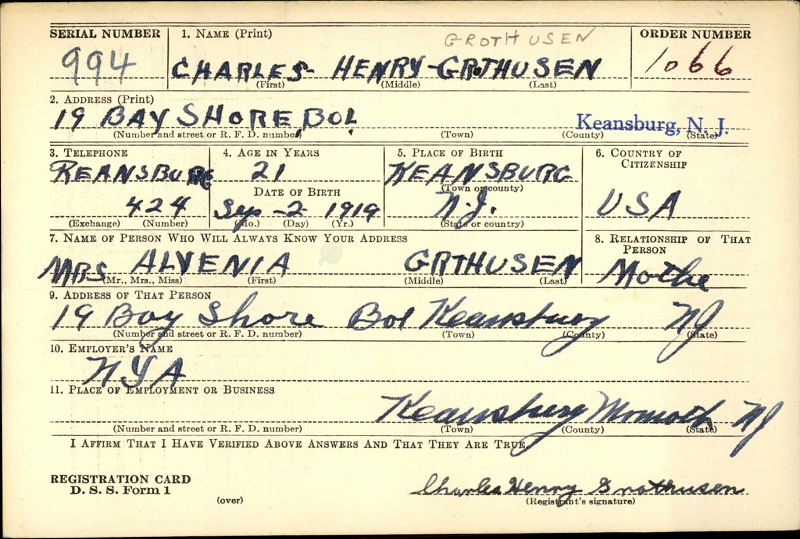 SERIAL NUMBER 1. NAME (Print) GROTHUSEN ORDER NUMBER
994 CHARLES HENRY GROTHUSEN 1066
(First) (Middle) (Last)
2. ADDRESS (Print)
19 BAY SHORE BOL Keansburg, N. J.
(Number and street or R. F. D. number) (Town) (County) (State)
3. TELEPHONE 4. AGE IN YEARS 5. PLACE OF BIRTH 6. COUNTRY OF CITIZENSHIP
KEANSBURG 21 KEANSBURG
DATE OF BIRTH (Town or county)
424 Sep-2-1919 N.J. USA
(Exchange) (Number) (Mo.) (Day) (Yr.) (State or country)
7. NAME OF PERSON WHO WILL ALWAYS KNOW YOUR ADDRESS 8. RELATIONSHIP OF THAT PERSON
MRS ALVENIA GRTHUSEN Mothe
(Mr., Mrs., Miss) (First) (Middle) (Last)
9. ADDRESS OF THAT PERSON
19 Bay Shore Bol Keansburg NJ
(Number and street or R. F. D. number) (Town) (County) (State)
10. EMPLOYER'S NAME
NYA
11. PLACE OF EMPLOYMENT OR BUSINESS
Keansburg Monmoth NJ
(Number and street or R. F. D. number) (Town) (County) (State)
I AFFIRM THAT I HAVE VERIFIED ABOVE ANSWERS AND THAT THEY ARE TRUE.
REGISTRATION CARD
D. S. S. Form 1 Charles Henry Grothusen
(over) (Registrant's signature)